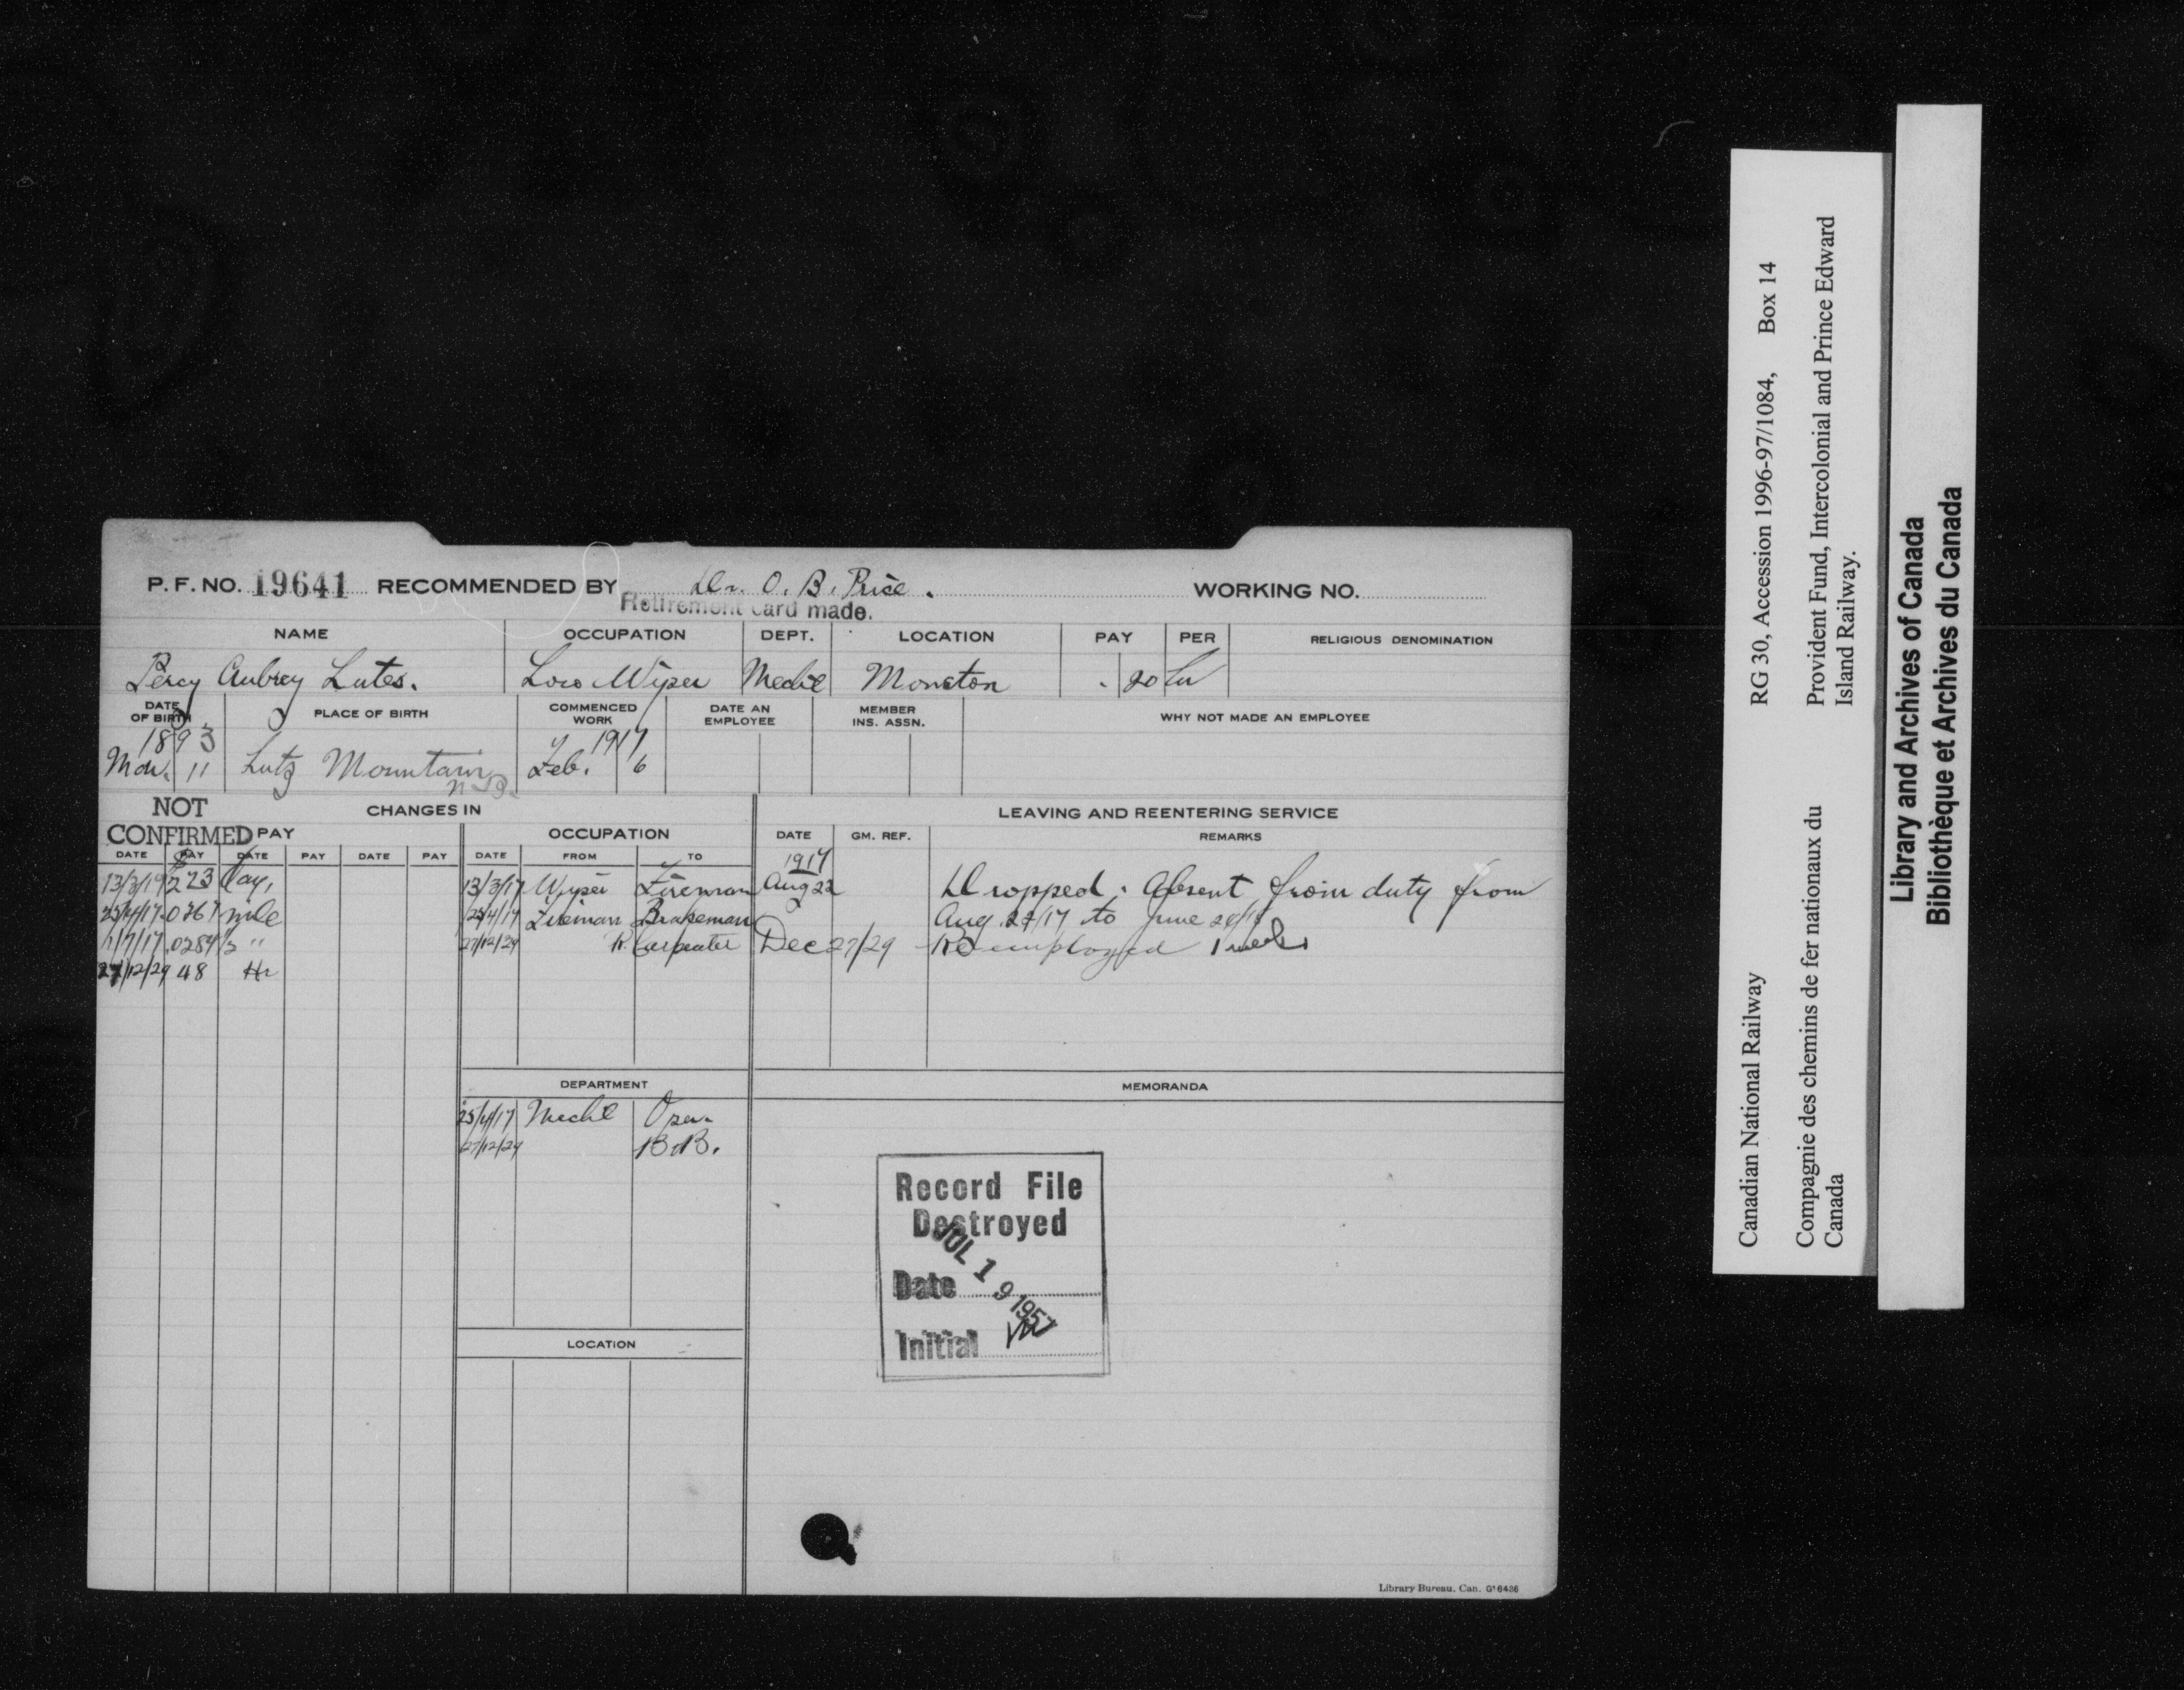 P.F. NO. 19641 RECOMMENDED BY Dr. O. B. Price. WORKING NO.
Retirement card made.
NAME OCCUPATION DEPT. LOCATION PAY PER RELIGIOUS DENOMINATION
Percy Aubrey Lutes. Loco Wiper Mechl Moncton . 20 hr
DATE OF BIRTH PLACE OF BIRTH COMMENCED WORK DATE AN EMPLOYEE MEMBER INS. ASSN. WHY NOT MADE AN EMPLOYEE
1893 1917
Mch. 11 Lutz Mountain Feb. 6
N.B.
NOT CONFIRMED
CHANGES IN LEAVING AND REENTERING SERVICE
PAY OCCUPATION DATE GM. REF. REMARKS
DATE PAY DATE PAY DATE PAY DATE FROM TO
1917
13/3/17 223 Day, 13/3/17 Wiper Fireman Aug 22 Dropped. Absent from duty from
25/4/17 .0267 mile 25/4/17 Fireman Brakeman Aug 27/17 to June
1/7/17 .0284½ " 27/12/29 R. Carpenter Dec 27/29 Re employed 1 week
27/12/29 48 Hr
DEPARTMENT MEMORANDA
25/4/17 Mechl Oper.
27/12/29 B.&B.
Record File
Destroyed
Date JUL 19 1957
Initial
LOCATION
Library Bureau. Can. G16436
Canadian National Railway RG 30, Accession 1996-97/1084, Box 14
Compagnie des chemins de fer nationaux du Canada
Provident Fund, Intercolonial and Prince Edward Island Railway.
Library and Archives of Canada
Bibliothèque et Archives du Canada